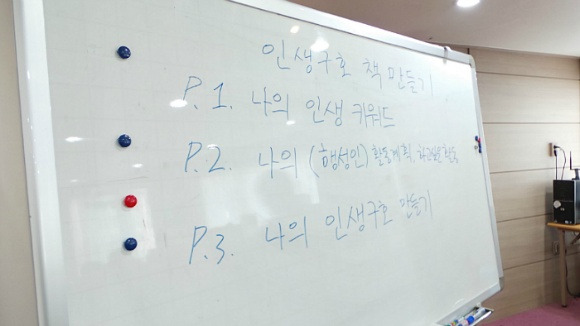 인생구호 책 만들기
P.1. 나의 인생 키워드
P.2. 나의 (행성인) 활동계획, 하고싶은 활동
P.3. 나의 인생구호 만들기